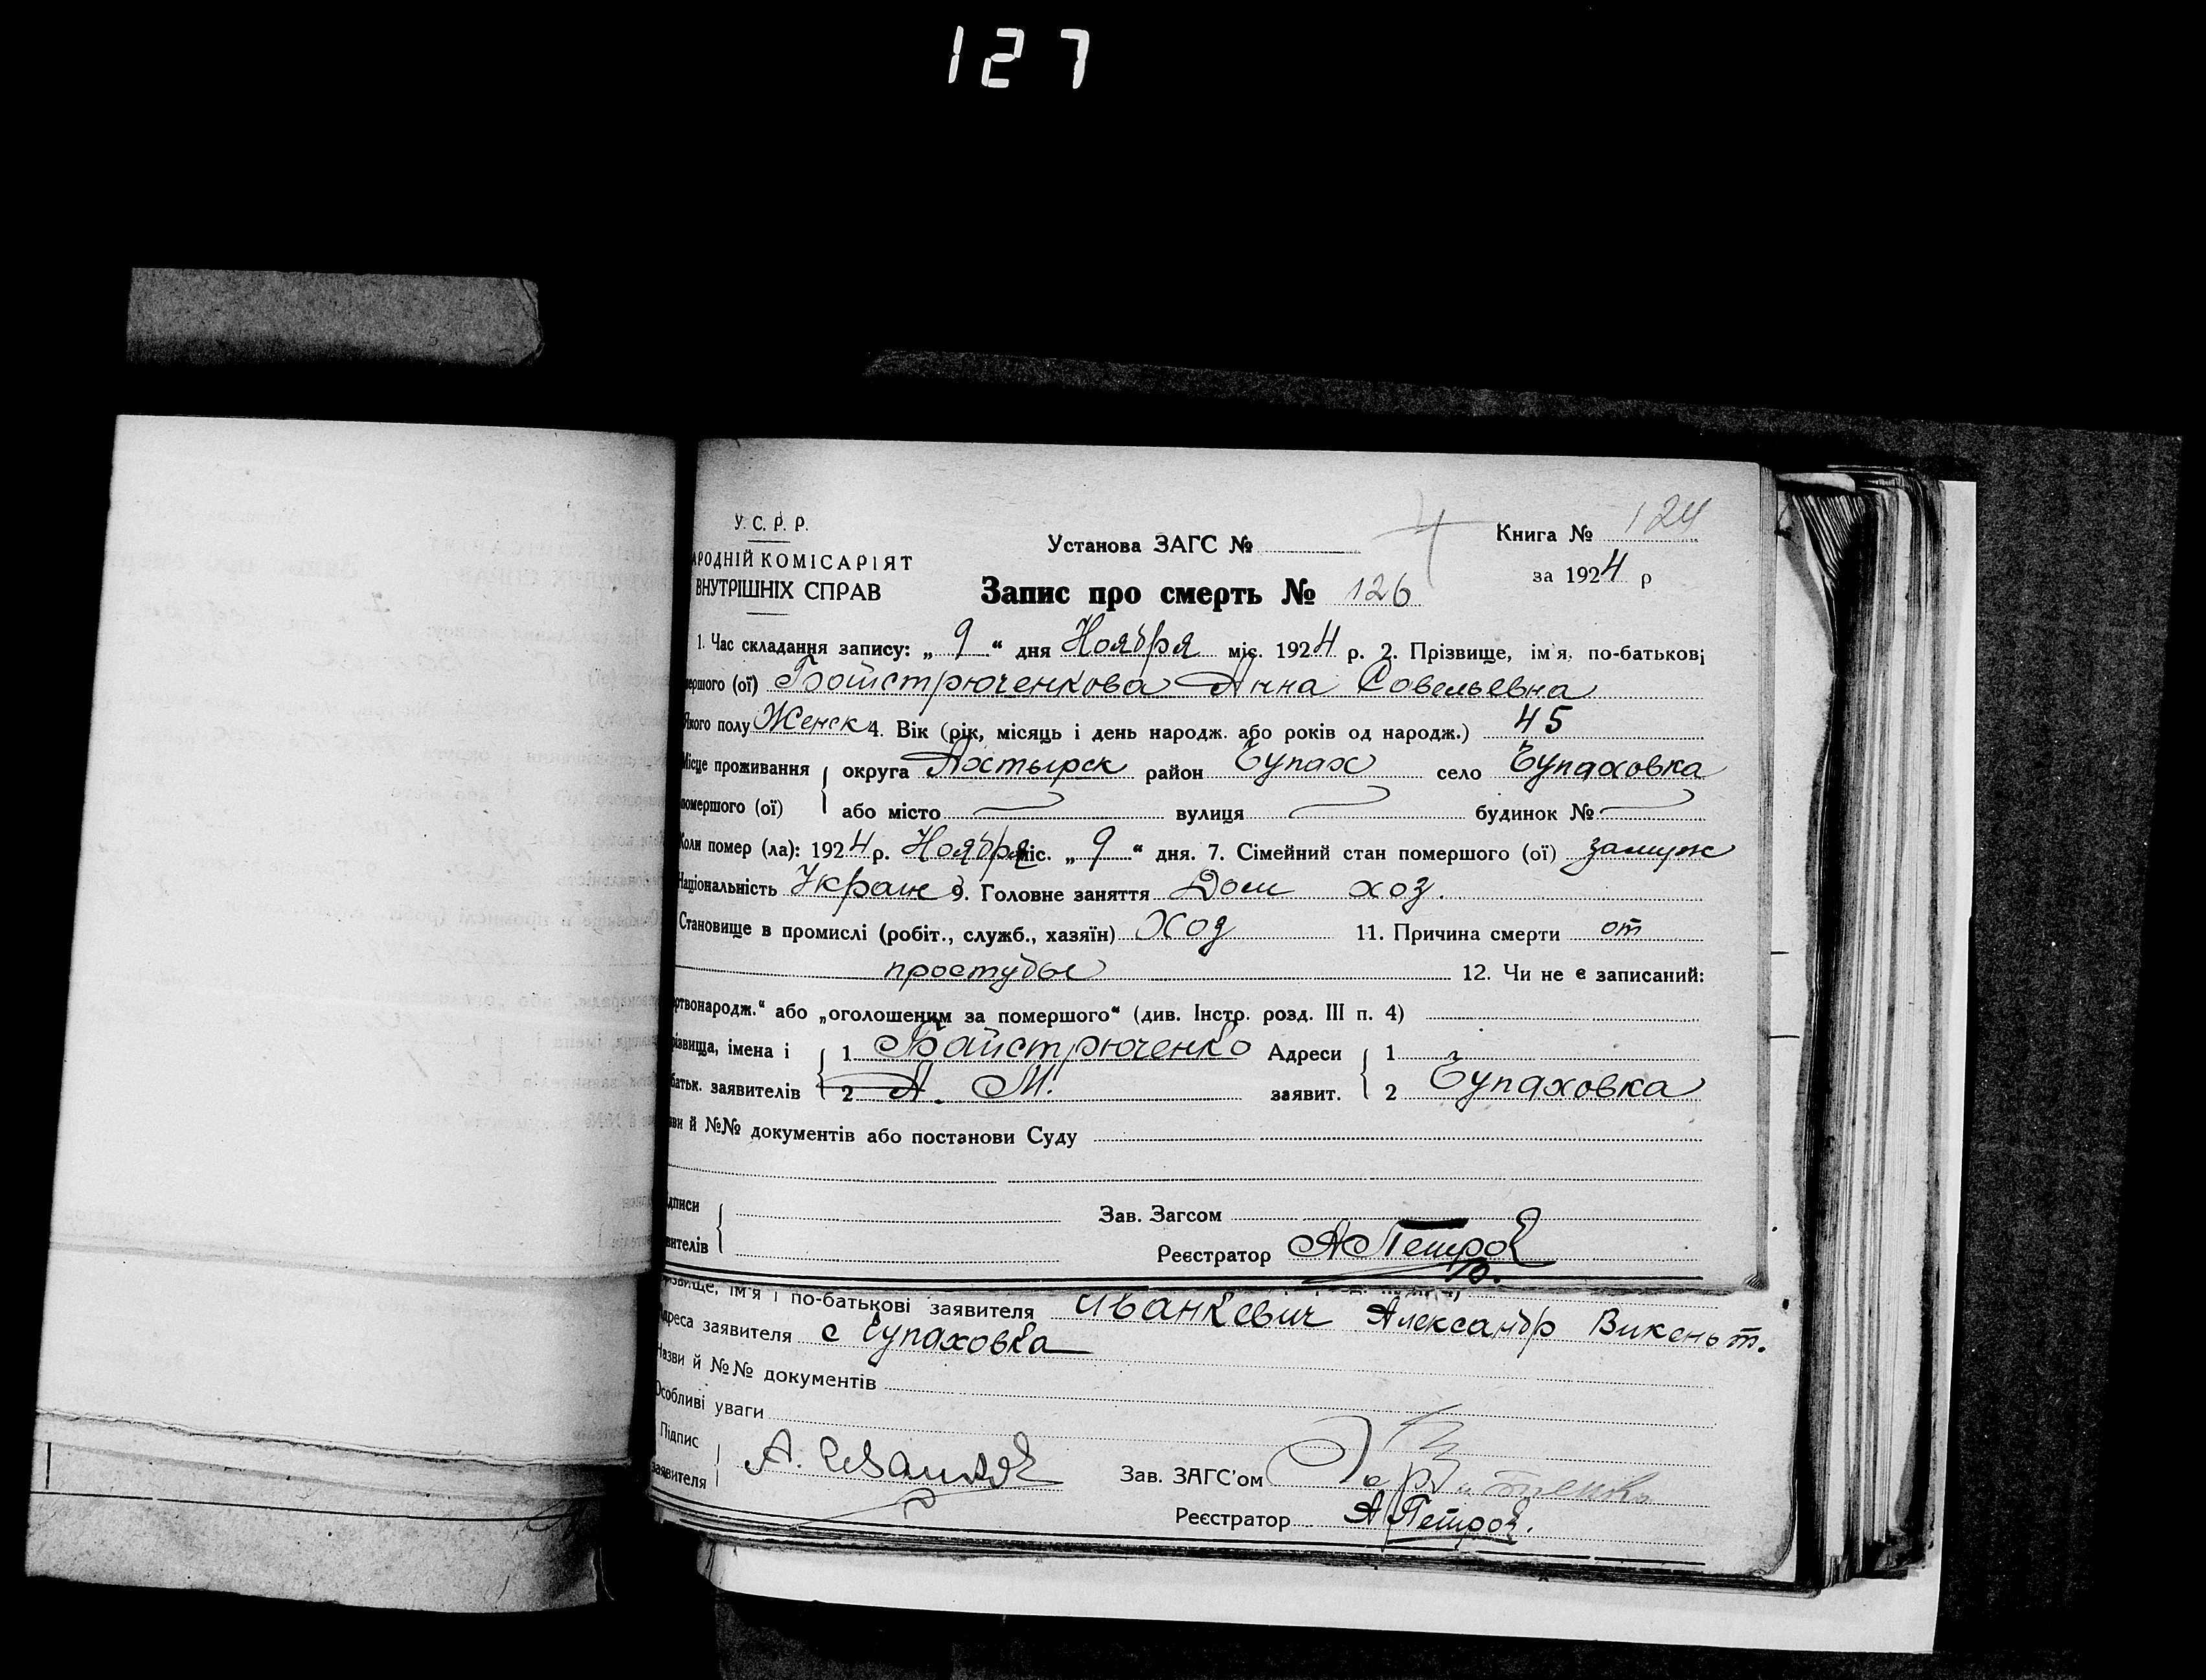 127
У. С. Р. Р.
АРОДНІЙ КОМІСАРІЯТ
ВНУТРІШНІХ СПРАВ
Установа ЗАГС №
4
Книга № 124
за 1924 р
Запис про смерть № 126
1. Час складання запису: „ 9 “ дня Ноября міс. 1924 р. 2. Прізвище, ім'я, по-батькові
мершого (ої) Байстрюченкова Анна Совельевна
Якого полу Женск 4. Вік (рік, місяць і день народж. або років од народж.) 45
Місце проживання округа Ахтырск район Чупах село Чупаховка
помершого (ої) або місто вулиця будинок №
Коли помер (ла): 1924 р. Ноября міс. „ 9 “ дня. 7. Сімейний стан помершого (ої) замуж
Національність Украин 9. Головне заняття Дом хоз.
Становище в промислі (робіт., служб., хазяїн) Хоз 11. Причина смерти от
простуды 12. Чи не є записаний:
ртвонародж.“ або „оголошеним за помершого“ (див. Інстр. розд. III п. 4)
різвища, імена і 1 Байстрюченко Адреси 1
батьк. заявителів 2 А. М. заявит. 2 Чупаховка
зви й №№ документів або постанови Суду
дписи
вителів
Зав. Загсом
Реєстратор А Петров
різвище, ім'я і по-батькові заявителя Иванкевич Александр Викеньт.
Адреса заявителя с Чупаховка
Назви й №№ документів
Особливі уваги
Підпис
заявителя
Зав. ЗАГС'ом
Реєстратор А Петров.